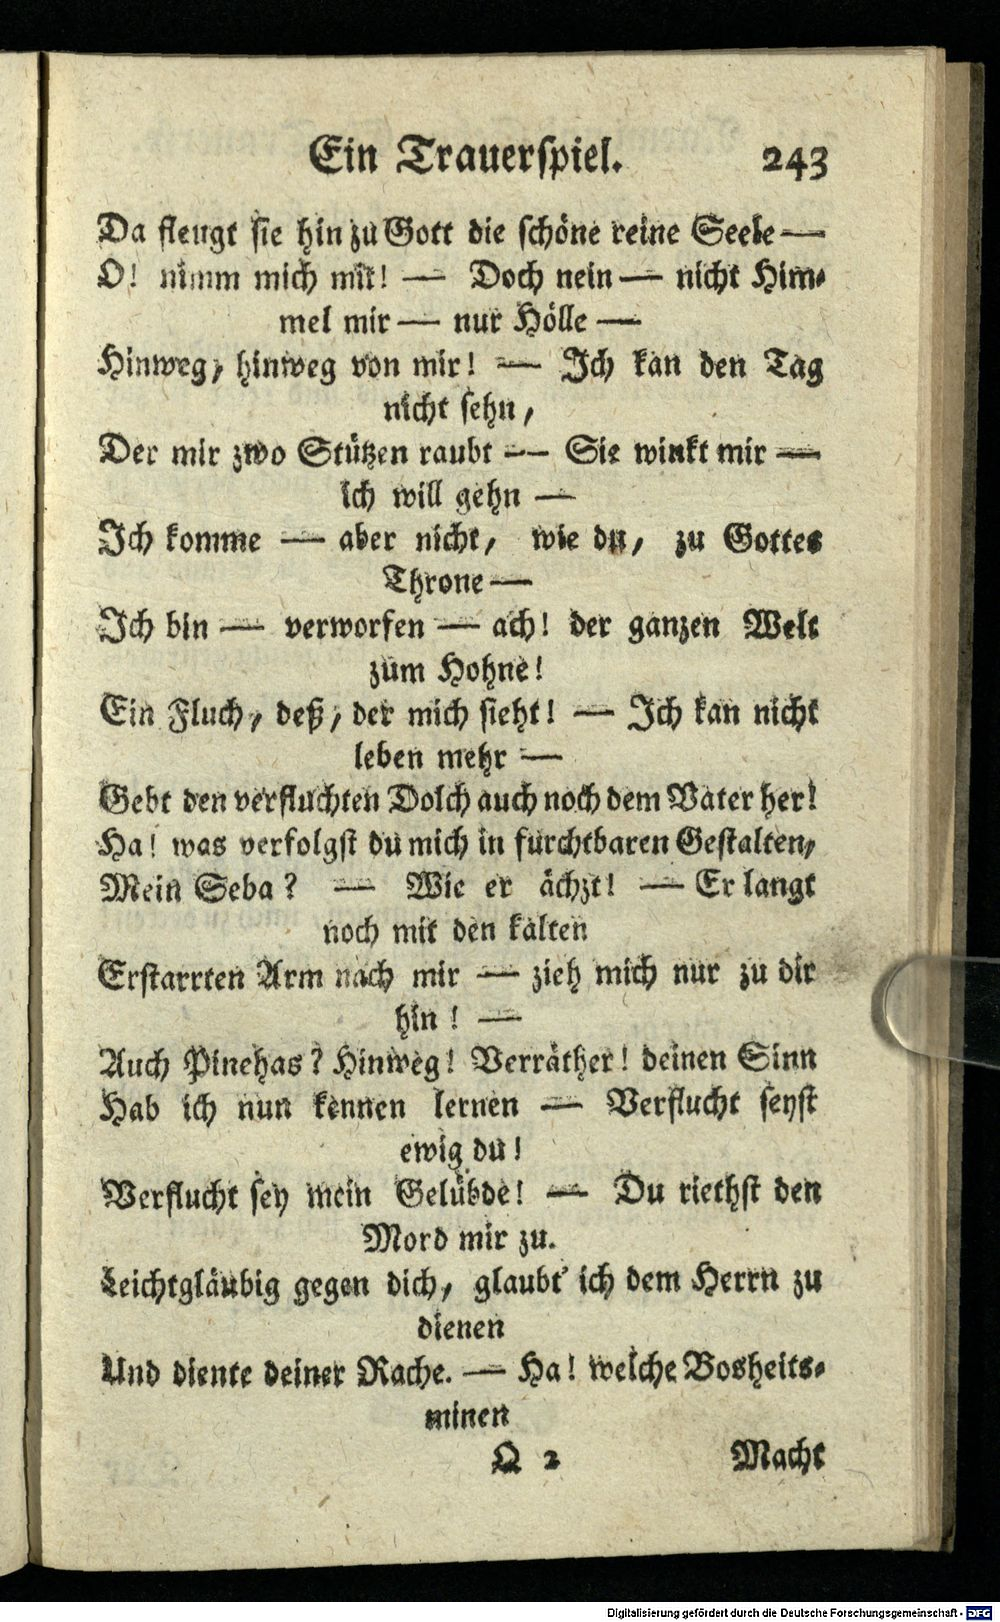 Ein Trauerspiel. 243
Da fleugt sie hin zu Gott die schöne reine Seele —
O! nimm mich mit! — Doch nein — nicht Him-
mel mir — nur Hölle —
Hinweg, hinweg von mir! — Ich kan den Tag
nicht sehn,
Der mir zwo Stützen raubt — Sie winkt mir —
ich will gehn —
Ich komme — aber nicht, wie du, zu Gottes
Throne —
Ich bin — verworfen — ach! der ganzen Welt
zum Hohne!
Ein Fluch, deß, der mich sieht! — Ich kan nicht
leben mehr —
Gebt den verfluchten Dolch auch noch dem Vater her!
Ha! was verfolgst du mich in furchtbaren Gestalten,
Mein Seba? — Wie er ächzt! — Er langt
noch mit den kalten
Erstarrten Arm nach mir — zieh mich nur zu dir
hin! —
Auch Pinehas? Hinweg! Verräther! deinen Sinn
Hab ich nun kennen lernen — Verflucht seyst
ewig du!
Verflucht sey mein Gelübde! — Du riethst den
Mord mir zu.
Leichtgläubig gegen dich, glaubt' ich dem Herrn zu
dienen
Und diente deiner Rache. — Ha! welche Bosheits-
minen
Q 2 Macht
Digitalisierung gefördert durch die Deutsche Forschungsgemeinschaft - DFG